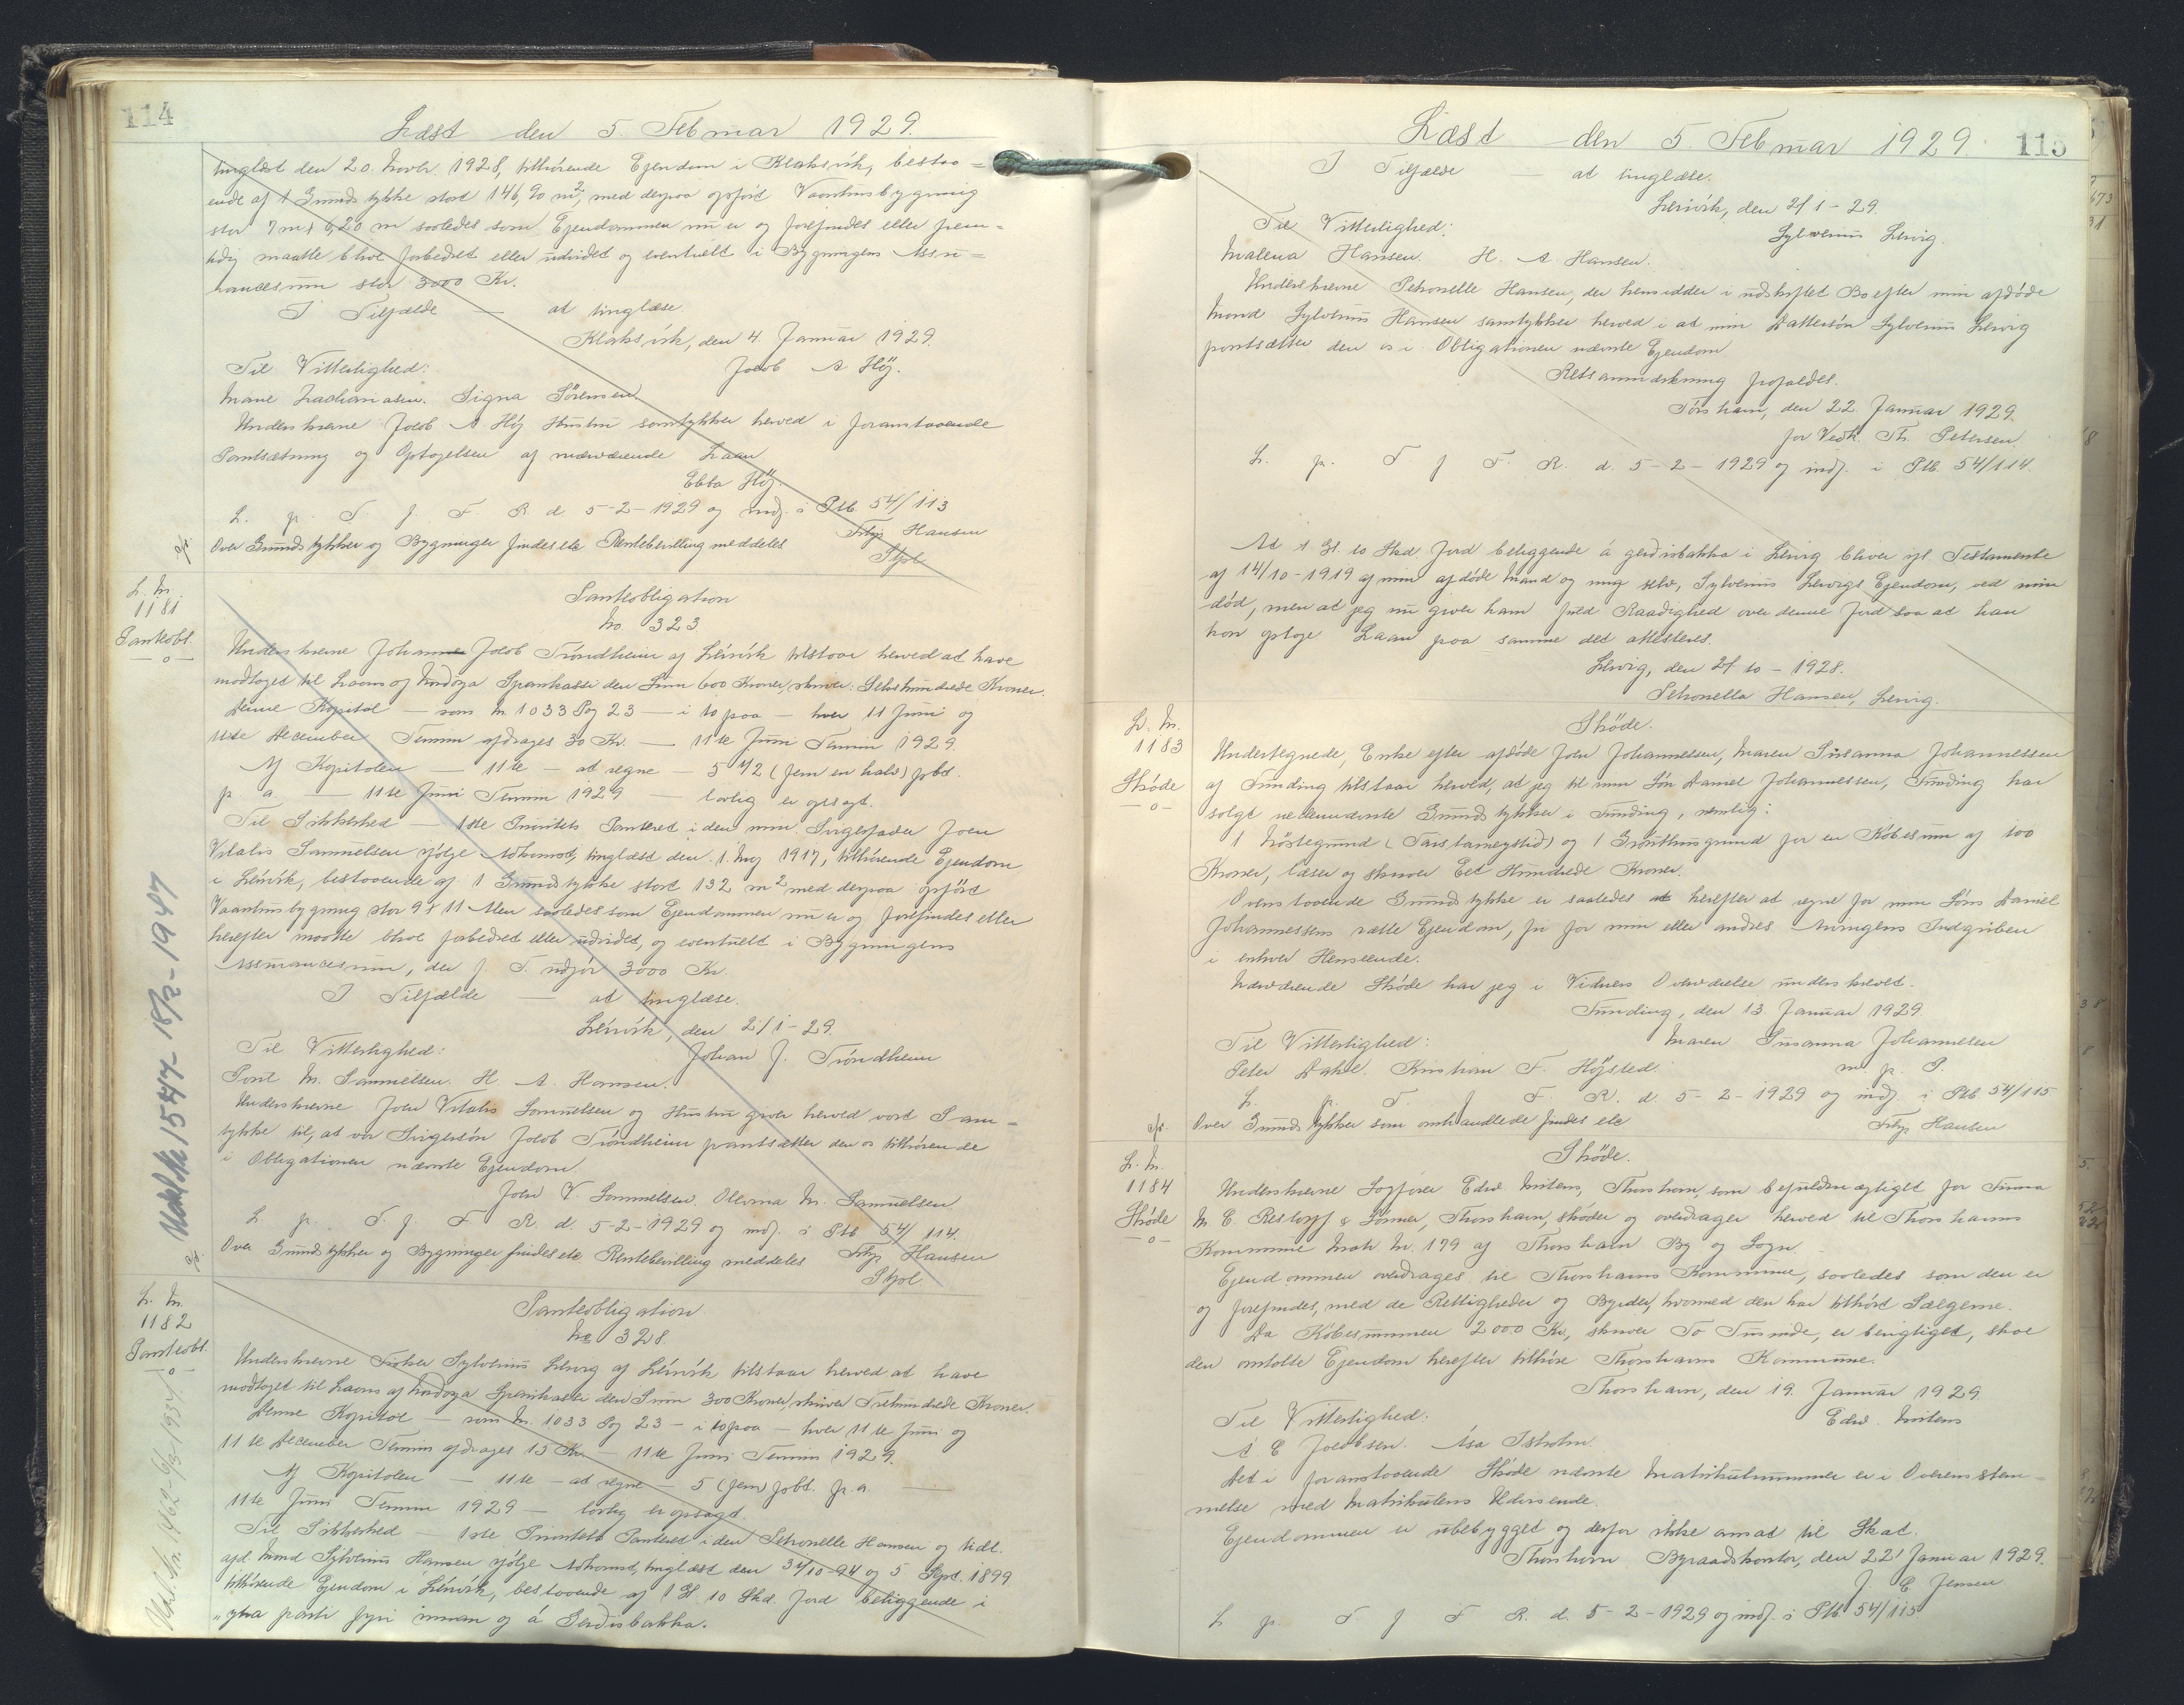 114
Læst den 5. Februar 1929.
tinglæst den 20. Novbr. 1928, tilhørende Ejendom i Klaksvik, bestaa=
ende af 1 Grundstykke stort 146,90 m², med derpaa opført Vaanhusbygning
stor 7 m x 6,20 m saaledes som Ejendommen nu er og forefindes eller frem=
tidig maatte blive forbedret eller udvidet og eventuelt i Bygningens Assu=
rancesum stor 3000 Kr.
I Tilfælde — at tinglæse
Klaksvik, den 4. Januar 1929.
Til Vitterlighed: Jacob A Høj.
Marie Zachariasen. Signa Sörensen
Underskrevne Jacob A Høj Hustru samtykker herved i foranstaaende
Pantsætning og Optagelsen af nærværende Laan
Ebba Høj.
L. p. T. f. F. R. d. 5-2-1929 og indf. i Ptb. 54/113
Over Grundstykker og Bygninger findes etc Rentebevilling meddeles Filip Hansen
Stpl.
L. Nr.
1181
Panteobl.
—o—
Panteobligation
No 323
Underskrevne Johannes Jacob Tróndheim af Leirvik tilstaar herved at have
modtaget til Laans af Nordoya Sparikassi den Sum 600 Kroner, skriver: Sekshundrede Kroner.
Denne Kapital — som Nr 1033 Pag 23 — i to paa — hver 11 Juni og
11te December Termin afdrages 30 Kr. — 11te Juni Termin 1929.
Af Kapitalen — 11te — at regne — 5 1/2 (fem en halv) pbt.
p. a. — 11te Juni Termin 1929 — lovlig er opsagt.
Til Sikkerhed — 1ste Prioritets Panteret i den min Svigerfader Joen
Vitalis Samuelsen ifølge Adkomst, tinglæst den 1. Maj 1917, tilhørende Ejendom
i Leirvik, bestaaende af 1 Grundstykke stort 132 m² med derpaa opført
Vaanhusbygning stor 9 x 11 Alen saaledes som Ejendommen nu er og forefindes eller
herefter maatte blive forbedret eller udvidet, og eventuelt i Bygningens
Assurancesum, der f. T. udgør 3000 Kr.
I Tilfælde — at tinglæse.
Leirvik, den 2/1-29.
Til Vitterlighed: Johan J. Tróndheim
Poul M. Samuelsen. H. A. Hansen.
Underskrevne Joen Vitalis Samuelsen og Hustru giver herved vort Sam=
tykke til, at vor Svigersøn Jacob Tróndheim pantsætter den os tilhørende
i Obligationen nævnte Ejendom.
Joen V. Samuelsen. Olevina M. Samuelsen
L. p. T. f. F. R. d. 5-2-1929 og indf. i Ptb 54/114.
Over Grundstykker og Bygninger findes etc. Rentebevilling meddeles Filip Hansen
Stpl.
Udsl. Nr 1547 18/2-1947
L. Nr.
1182
Panteobl.
—o—
Panteobligation
No 328
Underskrevne Fisker Sylverius Lervig af Leirvik tilstaar herved at have
modtaget til Laans af Nordoya Sparikassi den Sum 300 Kroner, skriver Trehundrede Kroner.
Denne Kapital — som Nr. 1033 Pag 23 — i to paa — hver 11te Juni og
11te December Termin afdrages 15 Kr — 11te Juni Termin 1929.
Af Kapitalen — 11te — at regne — 5 (fem) pbt. p. a. —
11te Juni Termin 1929 — lovlig er opsagt.
Til Sikkerhed — 1ste Prioritets Panteret i den Petronelle Hansen og tidl.
afd. Mand Sylverius Hansen ifølge Adkomst, tinglæst den 31/10-94 og 5 Sept. 1899
tilhørende Ejendom i Leirvik, bestaaende af 1 Gl. 10 Skd. Jord beliggende i
"ytra parti fyri innan og á Gerdisbakka.
Udsl. Nr. 1462 - 6/3-1934.
115
Læst den 5 Februar 1929.
I Tilfælde — at tinglæse.
Leirvik, den 2/1-29.
Til Vitterlighed: Sylverius Lervig.
Malena Hansen. H. A. Hansen.
Underskrevne Petronelle Hansen, der hensidder i uskiftet Bo efter min afdøde
Mand Sylverius Hansen samtykker herved i at min Dattersøn Sylverius Lervig
pantsætter den os i Obligationen nævnte Ejendom.
Retsanmærkning frafaldes.
Tórshavn, den 22. Januar 1929.
for Vedk. Th. Petersen
L. p. T. f. F. R. d. 5-2-1929 og indf. i Ptb. 54/114.
At 1 Gl. 10 Skd Jord beliggende á gerdisbakka i Lervig bliver ifl. Testamente
af 14/10-1919 af min afdøde Mand og mig selv, Sylverius Lervigs Ejendom, ved min
død, men at jeg nu giver ham fuld Raadighed over denne Jord saa at han
kan optage Laan paa samme det attesteres.
Lervig, den 2/10-1928.
Petronella Hansen, Lervig.
L. Nr.
1183
Skøde
—o—
Skøde.
Undertegnede, Enke efter afdøde Joen Johannessen, Maren Susanna Johannessen
af Funding tilstaar herved, at jeg til min Søn Daniel Johannessen, Funding har
solgt nedennævnte Grundstykker i Funding, nemlig:
1 Nøstegrund (Tarstarneystid) og 1 Grönthusgrund for en Købesum af 100
Kroner, læser og skriver Eet Hundrede Kroner.
Ovenstaaende Grundstykke er saaledes at herefter at regne for min Søns Daniel
Johannessens rætte Ejendom, fri for min eller andres Arvingers Indgriben
i enhver Henseende.
Nærværende Skøde har jeg i Vidners Overværelse underskrevet.
Funding, den 13. Januar 1929
Til Vitterlighed: Maren Susanna Johannesen
Peter Dahl. Kristian F. Højsted. m. p. P.
L. p. T. f. F. R. d. 5-2-1929 og indf. i Ptb. 54/115
Over Grundstykker som omhandlede findes etc Filip Hansen
L. Nr.
1184
Skøde
—o—
Skøde.
Underskrevne Sagfører Edw Mitens, Thorshavn, som befuldmægtiget for Firma
M. C. Restorff & Sønner, Thorshavn, skøder og overdrager herved til Thorshavns
Kommune Matr. Nr. 179 af Thorshavn By og Sogn.
Ejendommen overdrages til Thorshavns Kommune, saaledes som den er
og forefindes, med de Rettigheder og Byrder, hvormed den har tilhørt Sælgerne.
Da Købesummen 2000 Kr, skriver To Tusinde, er berigtiget, skal
den omtalte Ejendom herefter tilhøre Thorshavns Kommune.
Thorshavn, den 19. Januar 1929
Til Vitterlighed: Edw. Mitens
A C Jacobsen. Ása Isholm
Det i foranstaaende Skøde nævnte Matrikulnummer er i Overensstem=
melse med Matrikulens Udvisende.
Ejendommen er ubebygget og derfor ikke ansat til Skat.
Thorshavn Byraadskontor, den 22' Januar 1929.
J. C Jensen
L p. T f F R. d. 5-2-1929 og indf. i Ptb 54/115